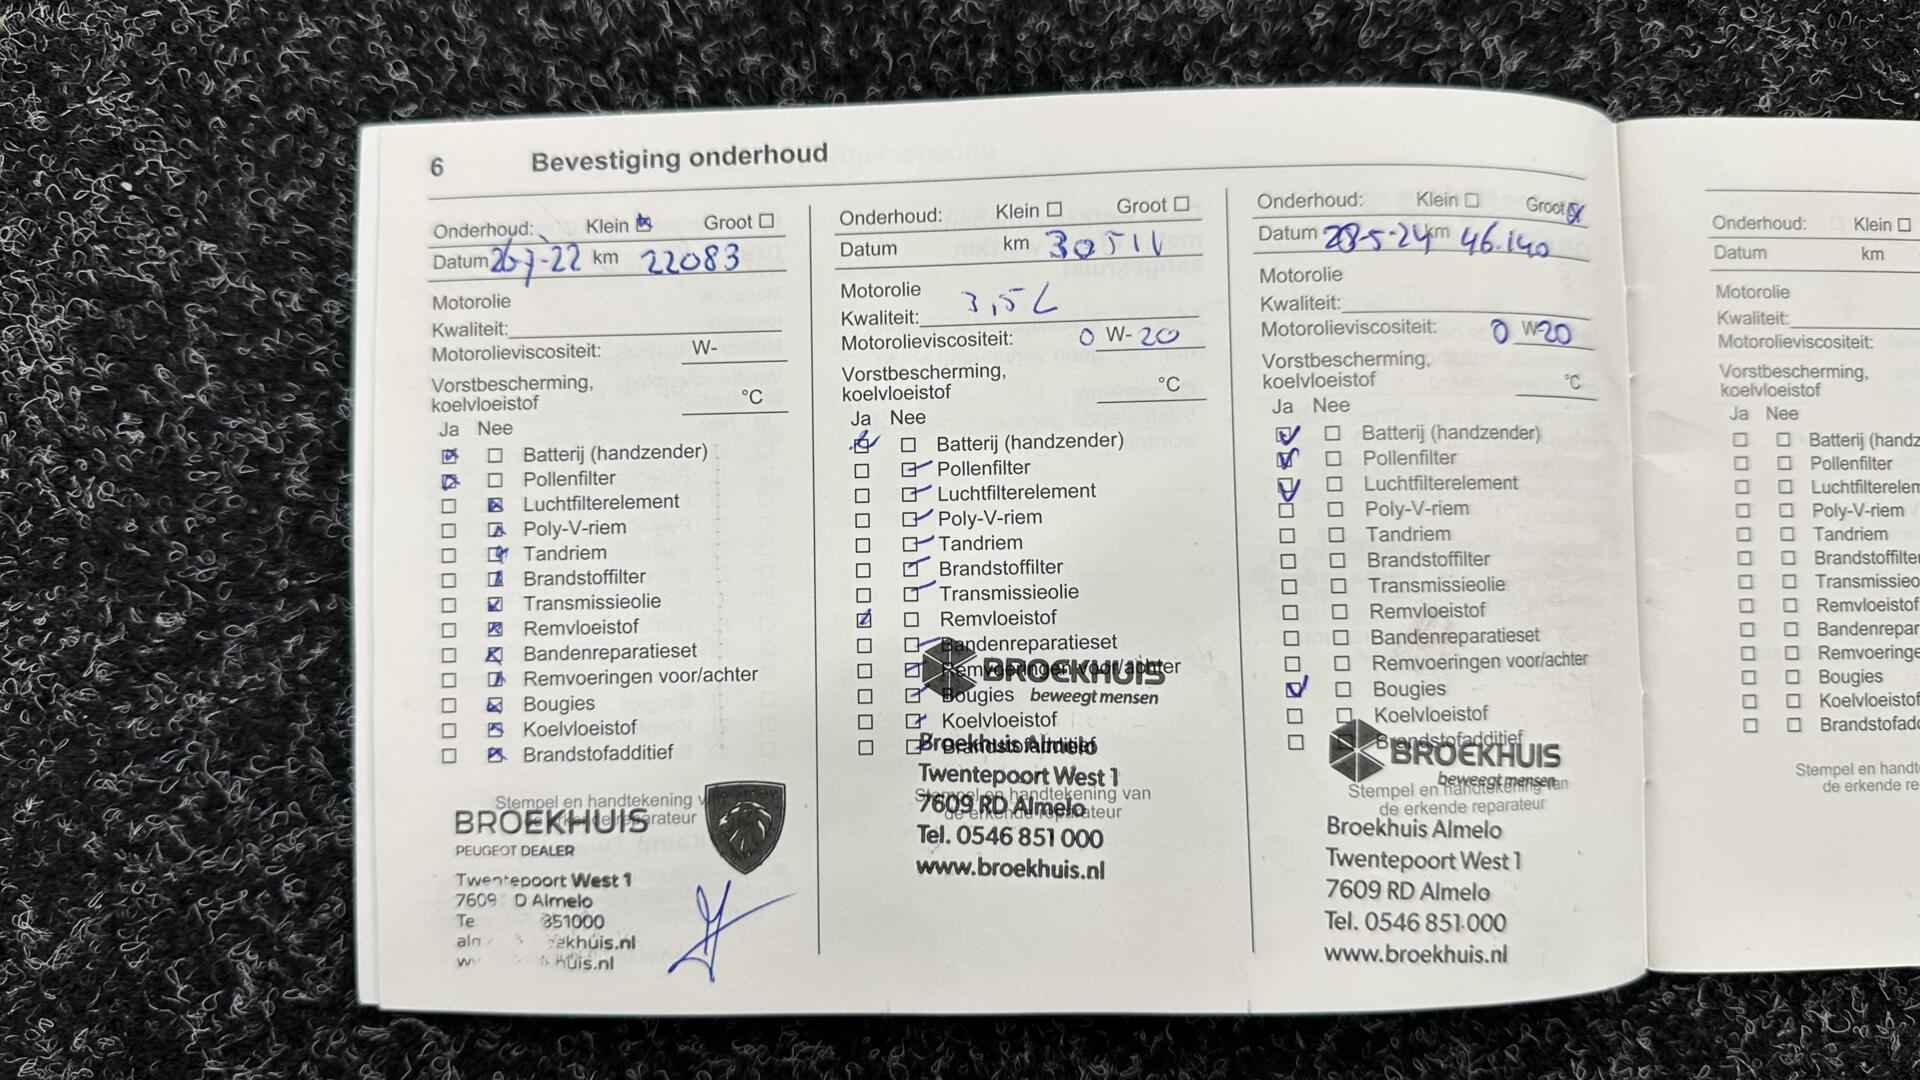 6 Bevestiging onderhoud
Onderhoud: Klein Groot
Datum 26-7-22 km 22083
Motorolie
Kwaliteit:
Motorolieviscositeit: W-
Vorstbescherming,
koelvloeistof °C
Ja Nee
Batterij (handzender)
Pollenfilter
Luchtfilterelement
Poly-V-riem
Tandriem
Brandstoffilter
Transmissieolie
Remvloeistof
Bandenreparatieset
Remvoeringen voor/achter
Bougies
Koelvloeistof
Brandstofadditief
Stempel en handtekening
BROEKHUIS
PEUGEOT DEALER
Twentepoort West 1
7609 D Almelo
Te 851000
ekhuis.nl
huis.nl
Onderhoud: Klein Groot
Datum km 30511
Motorolie
Kwaliteit: 3,5 L
Motorolieviscositeit: 0 W-20
Vorstbescherming,
koelvloeistof °C
Ja Nee
Batterij (handzender)
Pollenfilter
Luchtfilterelement
Poly-V-riem
Tandriem
Brandstoffilter
Transmissieolie
Remvloeistof
Bandenreparatieset
Remvoeringen voor/achter
BROEKHUIS
Bougies
beweegt mensen
Koelvloeistof
Brandstofadditief
Broekhuis Almelo
Twentepoort West 1
Stempel en handtekening van
7609 RD Almelo
de erkende reparateur
Tel. 0546 851 000
www.broekhuis.nl
Onderhoud: Klein Groot
Datum 28-5-24 km 46.140
Motorolie
Kwaliteit:
Motorolieviscositeit: 0 W-20
Vorstbescherming,
koelvloeistof °C
Ja Nee
Batterij (handzender)
Pollenfilter
Luchtfilterelement
Poly-V-riem
Tandriem
Brandstoffilter
Transmissieolie
Remvloeistof
Bandenreparatieset
Remvoeringen voor/achter
Bougies
Koelvloeistof
Brandstofadditief
BROEKHUIS
beweegt mensen
Stempel en handtekening van
de erkende reparateur
Broekhuis Almelo
Twentepoort West 1
7609 RD Almelo
Tel. 0546 851 000
www.broekhuis.nl
Onderhoud: Klein
Datum km
Motorolie
Kwaliteit:
Motorolieviscositeit:
Vorstbescherming,
koelvloeistof
Ja Nee
Batterij (handz
Pollenfilter
Luchtfilterelem
Poly-V-riem
Tandriem
Brandstoffilter
Transmissieo
Remvloeistof
Bandenrepar
Remvoeringe
Bougies
Koelvloeistof
Brandstofadd
Stempel en handt
de erkende re